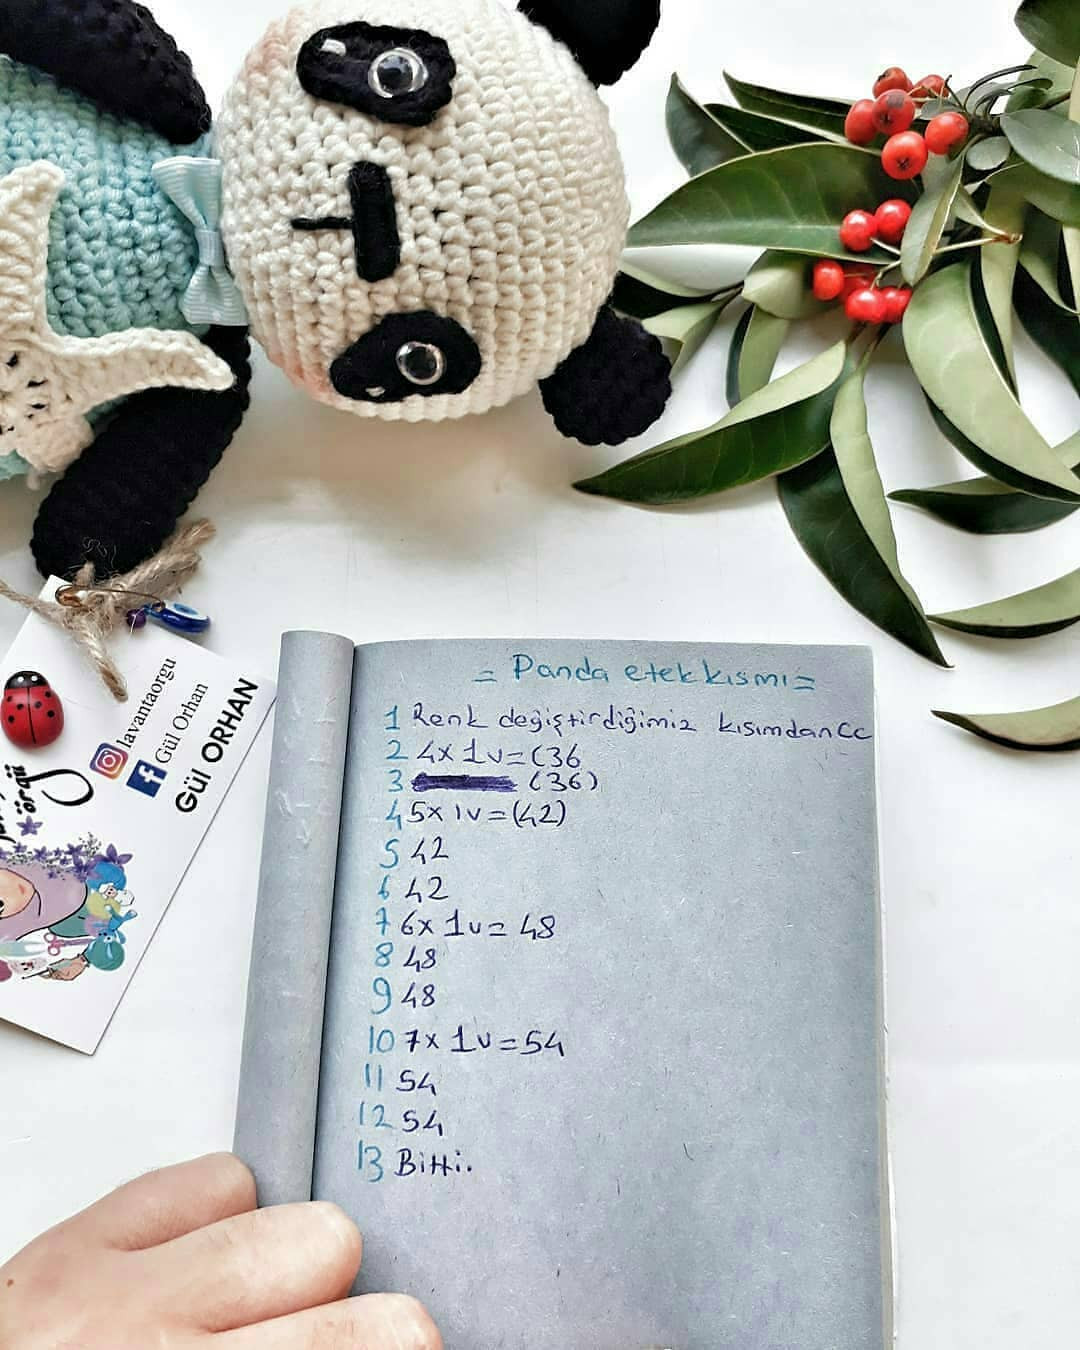 = Panda etek kısmı =
1 Renk değiştirdiğimiz kısımdan cc
2 4x 1v=(36
3 (36)
4 5x 1v=(42)
5 42
6 42
7 6x 1v= 48
8 48
9 48
10 7x 1v=54
11 54
12 54
13 Bitti.
lavantaorgu
Gül Orhan
GÜL ORHAN
örgü